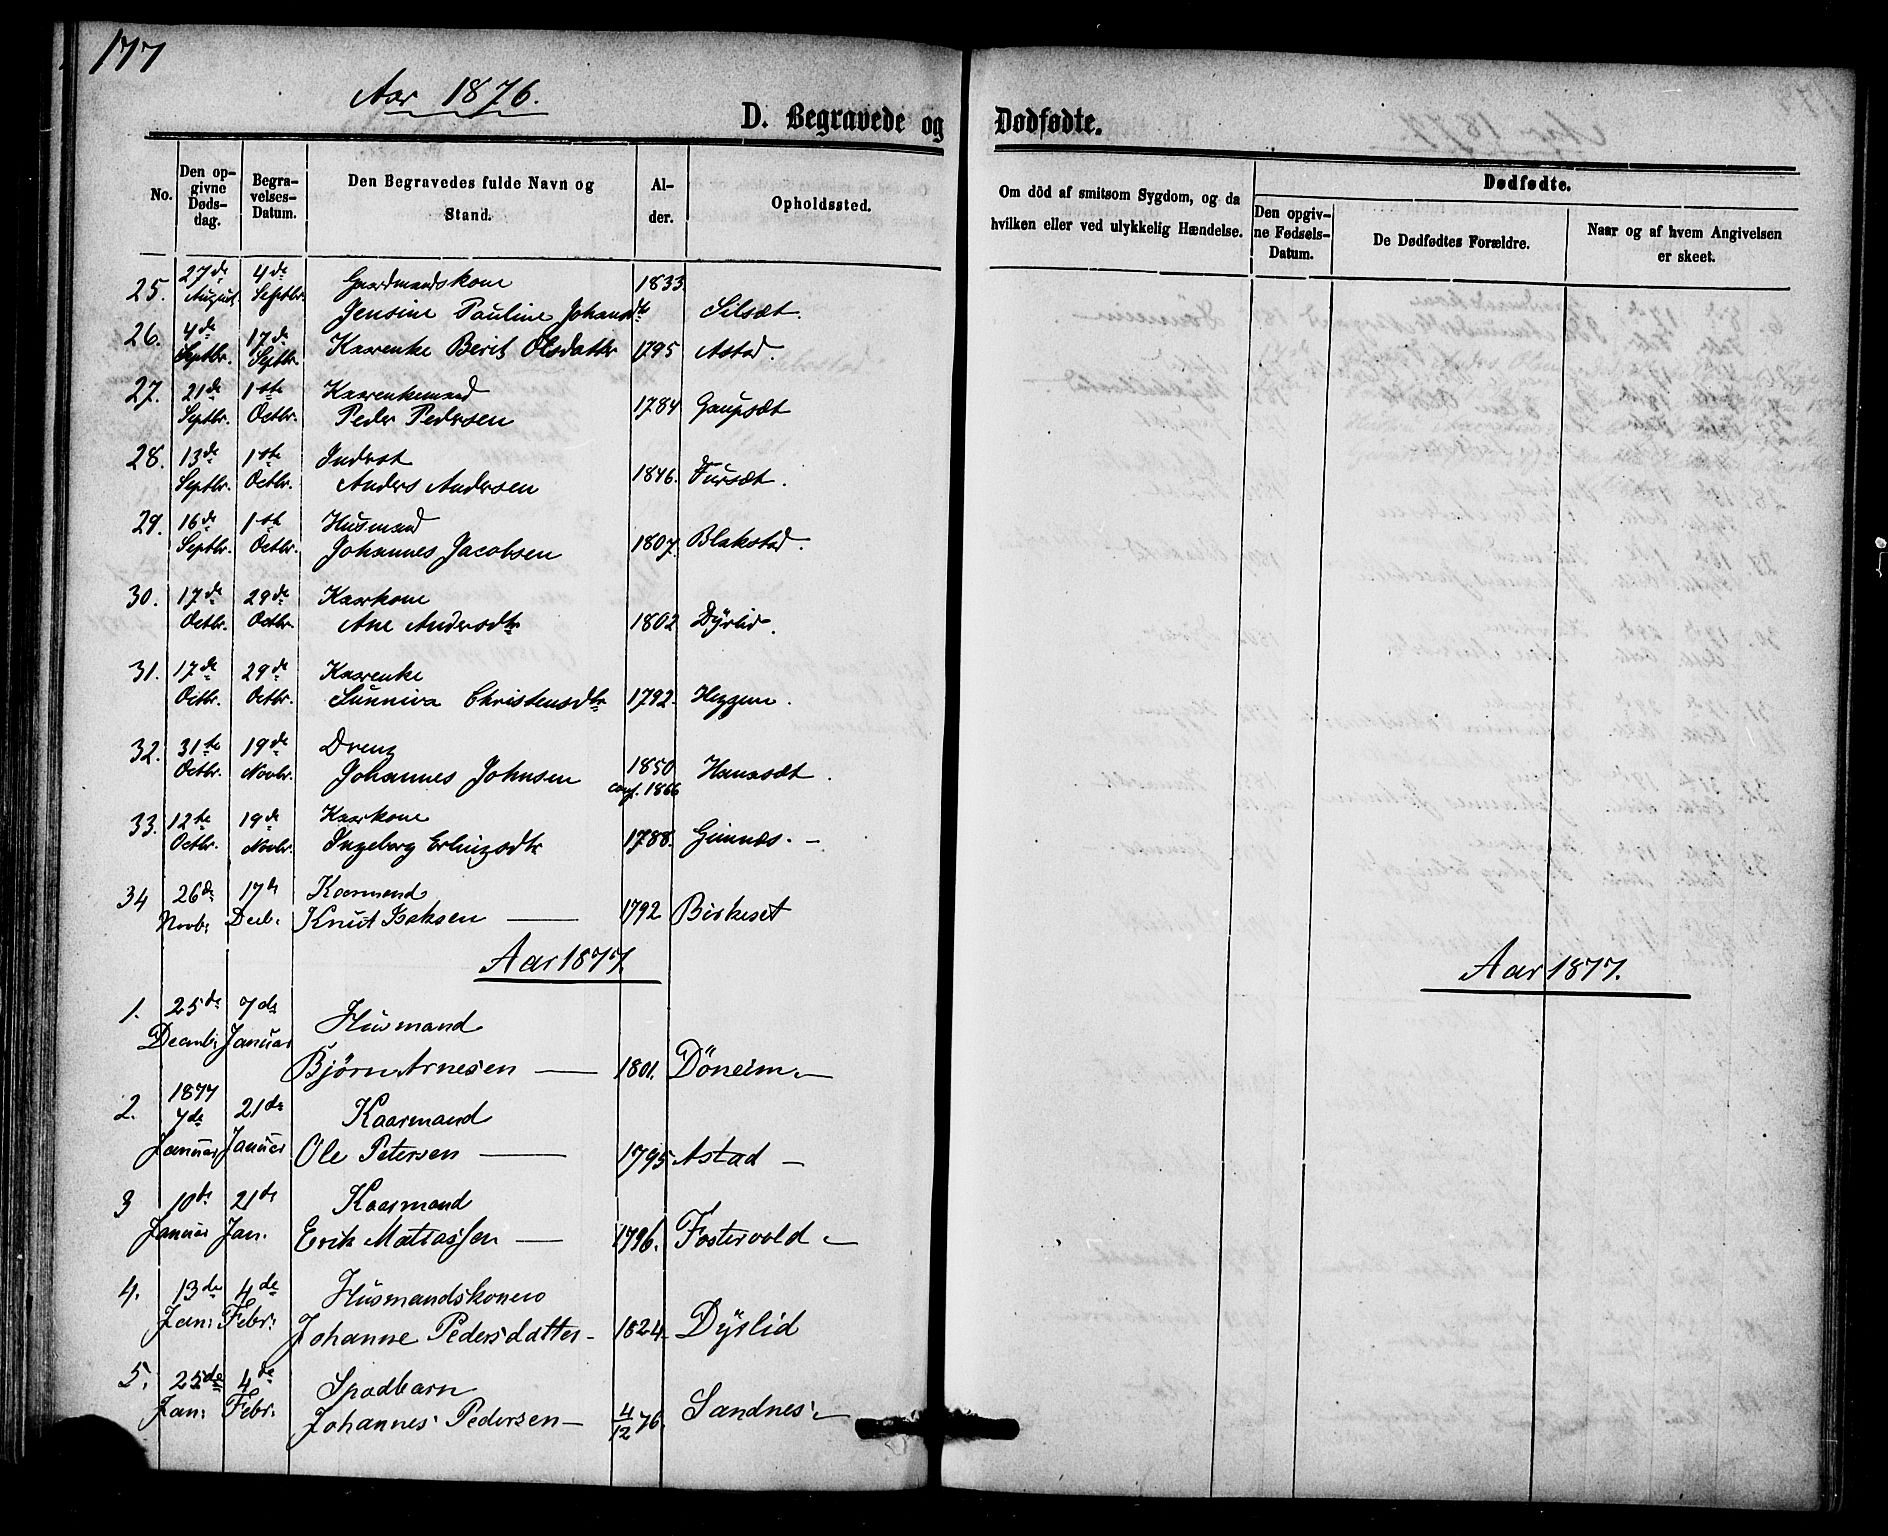 177
Aar 1876.
D. Begravede og Dødfødte.
No. Den opgivne Dødsdag. Begravelses-Datum. Den Begravedes fulde Navn og Stand. Alder. Opholdssted. Om död af smitsom Sygdom, og da hvilken eller ved ulykkelig Hændelse. Dødfødte. Den opgivne Fødsels-Datum. De Dødfødtes Forældre. Naar og af hvem Angivelsen er skeet.
25. 27de August. 4de Septbr. Gaardmandskone 1833
Jensine Pauline Johansdtr Silsæt.
26. 4de Septbr. 17de Septbr. Kaarenke Berit Olsdattr 1795 Astad.
27. 21de Septbr. 1ste Octbr. Kaarenkemand
Peder Pedersen 1784 Gaupsæt
28. 13de Septbr. 1ste Octbr. Inderst
Anders Andersen 1846. Fursæt.
29. 16de Septbr. 1st Octbr. Husmand
Johannes Jacobsen 1807. Blakstad.
30. 17de Octbr. 29de Octbr. Kaarkone
Ane Andersdtr 1802 Dÿrlid.
31. 17de Octbr. 29de Octbr. Kaarenke
Sunniva Christensdtr 1792. Heggem.
32. 31te Octbr. 19de Novbr. Dreng
Johannes Johnsen 1850 conf. 1866 Hanasæt.
33. 12te Octbr. 19de Novbr. Kaarkone
Ingeborg Erlingsdtr 1788. Gimnæs. -
34 26de Novb: 17de Decb. Kaarmand
Knut Isaksen — 1792 Birkeset
Aar 1877. Aar 1877.
1. 25de Decembr 7de Januar Husmand
Bjørn Arnesen — 1801. Döneim —
2. 1877 7de Januar 21de Januar Kaarmand
Ole Petersen — 1795 Astad —
3 10de Januar 21de Jan. Kaarmand
Erik Matiassen — 1796. Fostervold —
4. 13de Jan: 4de Febr: Husmandskonen
Johanne Pedersdatter - 1824. Dÿrlid
5. 25de Jan: 4de Febr: Spædbarn
Johannes Pedersen — 4/12 76. Sandnes —